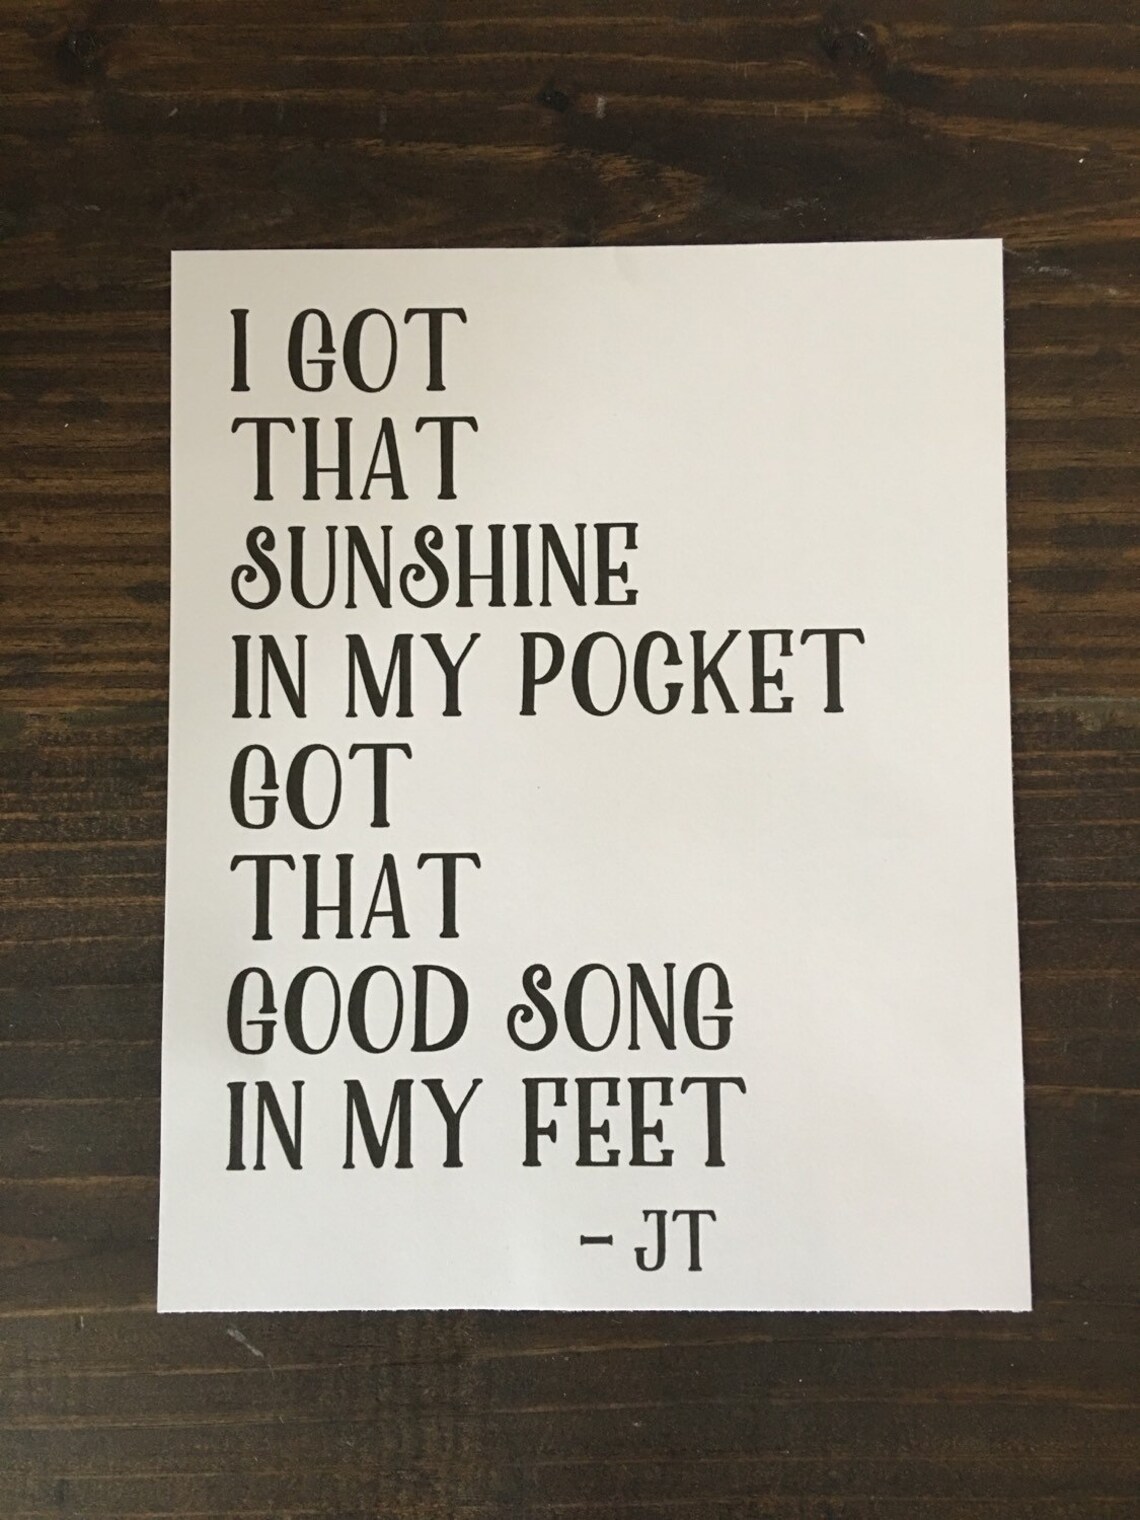 I GOT
THAT
SUNSHINE
IN MY POCKET
GOT
THAT
GOOD SONG
IN MY FEET
- JT